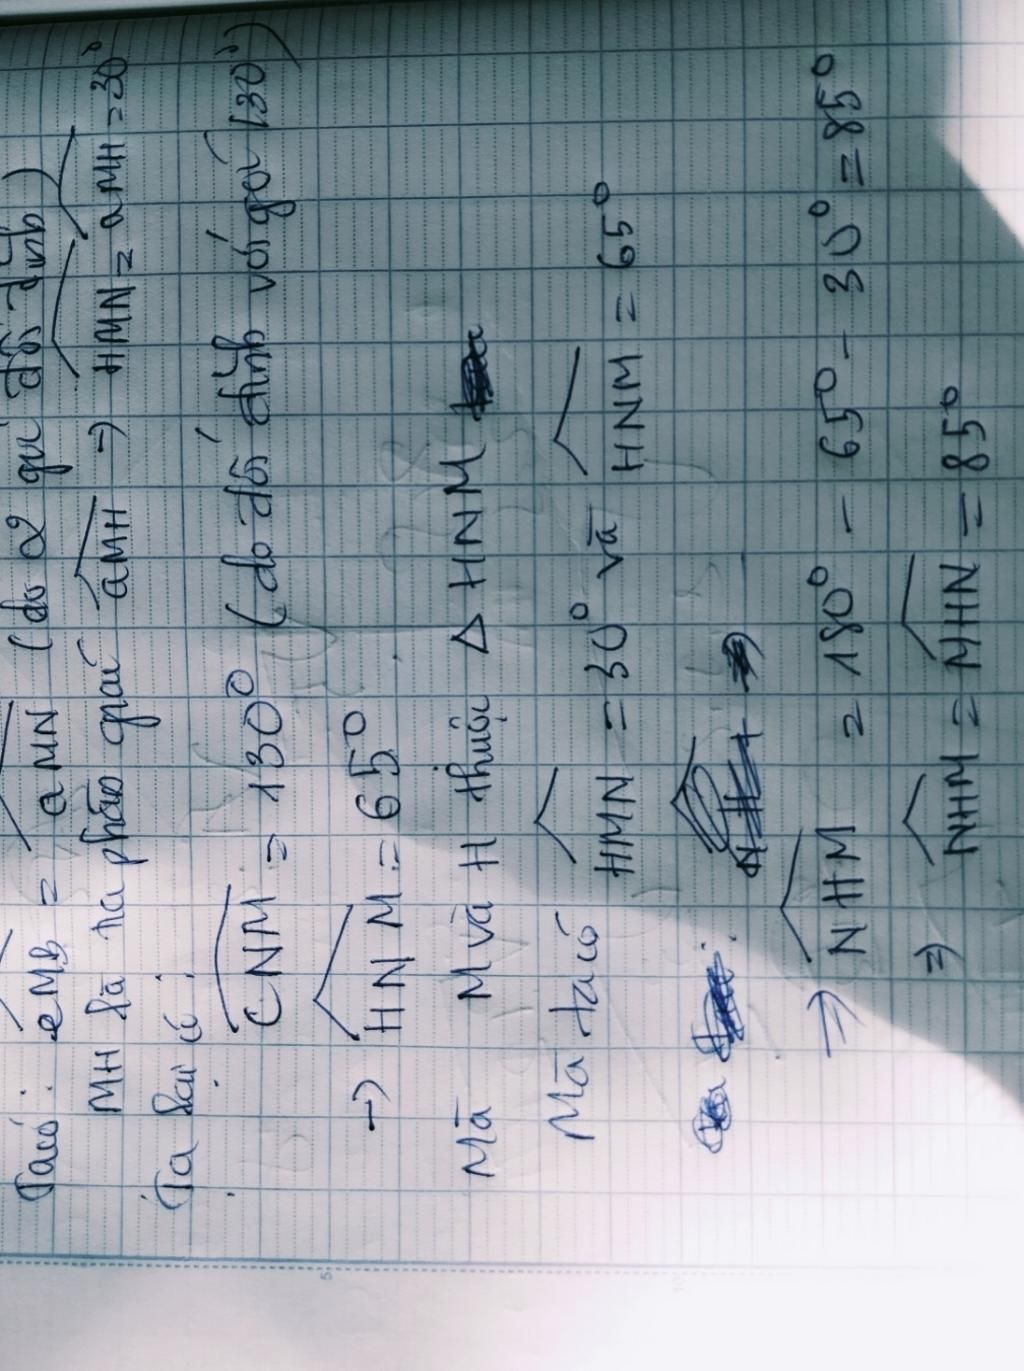 Ta có: eMB = aMN (do 2 góc đối đỉnh)
MH là tia phân giác aMH => HMN = aMH = 30°
Ta lại có:
CNM = 130° (do đối đỉnh với góc 130°)
=> HNM = 65°
Mà M và H thuộc Δ HNM
Mà ta có HMN = 30° và HNM = 65°
=> NHM = 180° - 65° - 30° = 85°
=> NHM = MHN = 85°
5
10